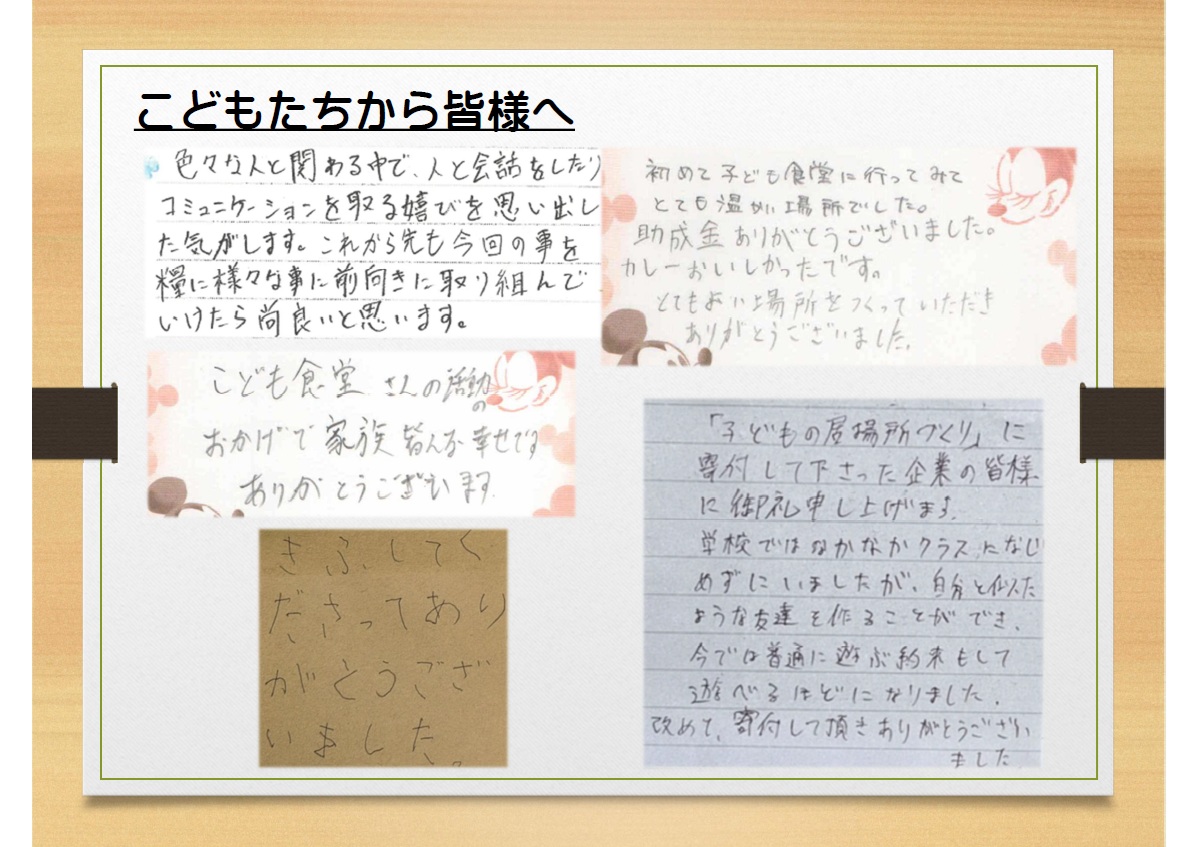 こどもたちから皆様へ
色々な人と関わる中で、人と会話をしたり
コミュニケーションを取る嬉びを思い出し
た気がします。これから先も今回の事を
糧に様々な事に前向きに取り組んで
いけたら尚良いと思います。
初めて子ども食堂に行ってみて
とても温かい場所でした。
助成金ありがとうございました。
カレーおいしかったです。
とてもよい場所をつくっていただき
ありがとうございました。
こども食堂さんの活動の
おかげで家族皆んな幸せです
ありがとうございます
きふしてく
ださってあり
がとうござ
いました。
「子どもの居場所づくり」に
寄付して下さった企業の皆様
に御礼申し上げます。
学校ではなかなかクラスになじ
めずにいましたが、自分と似た
ような友達を作ることができ、
今では普通に遊ぶ約束もして
遊べるほどになりました。
改めて、寄付して頂きありがとうござい
ました